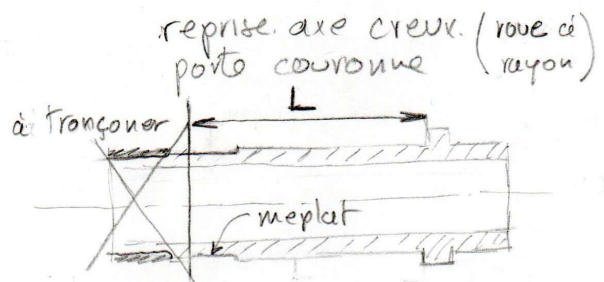 reprise axe creux (roue à
porte couronne rayon)
L
à tronçoner
meplat